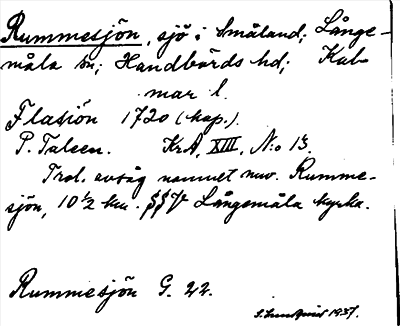 Rummesjön, sjö i Småland; Långe-
måla sn; Handbörds hd; Kal-
mar l.
Flasiön 1720 (kop.).
P. Taleen. KrA, XIII, N:o 13.
Trol. avsåg namnet nuv. Rumme-
sjön, 10 1/2 km. Långemåla kyrka.
Rummesjön G. 22.
1937.